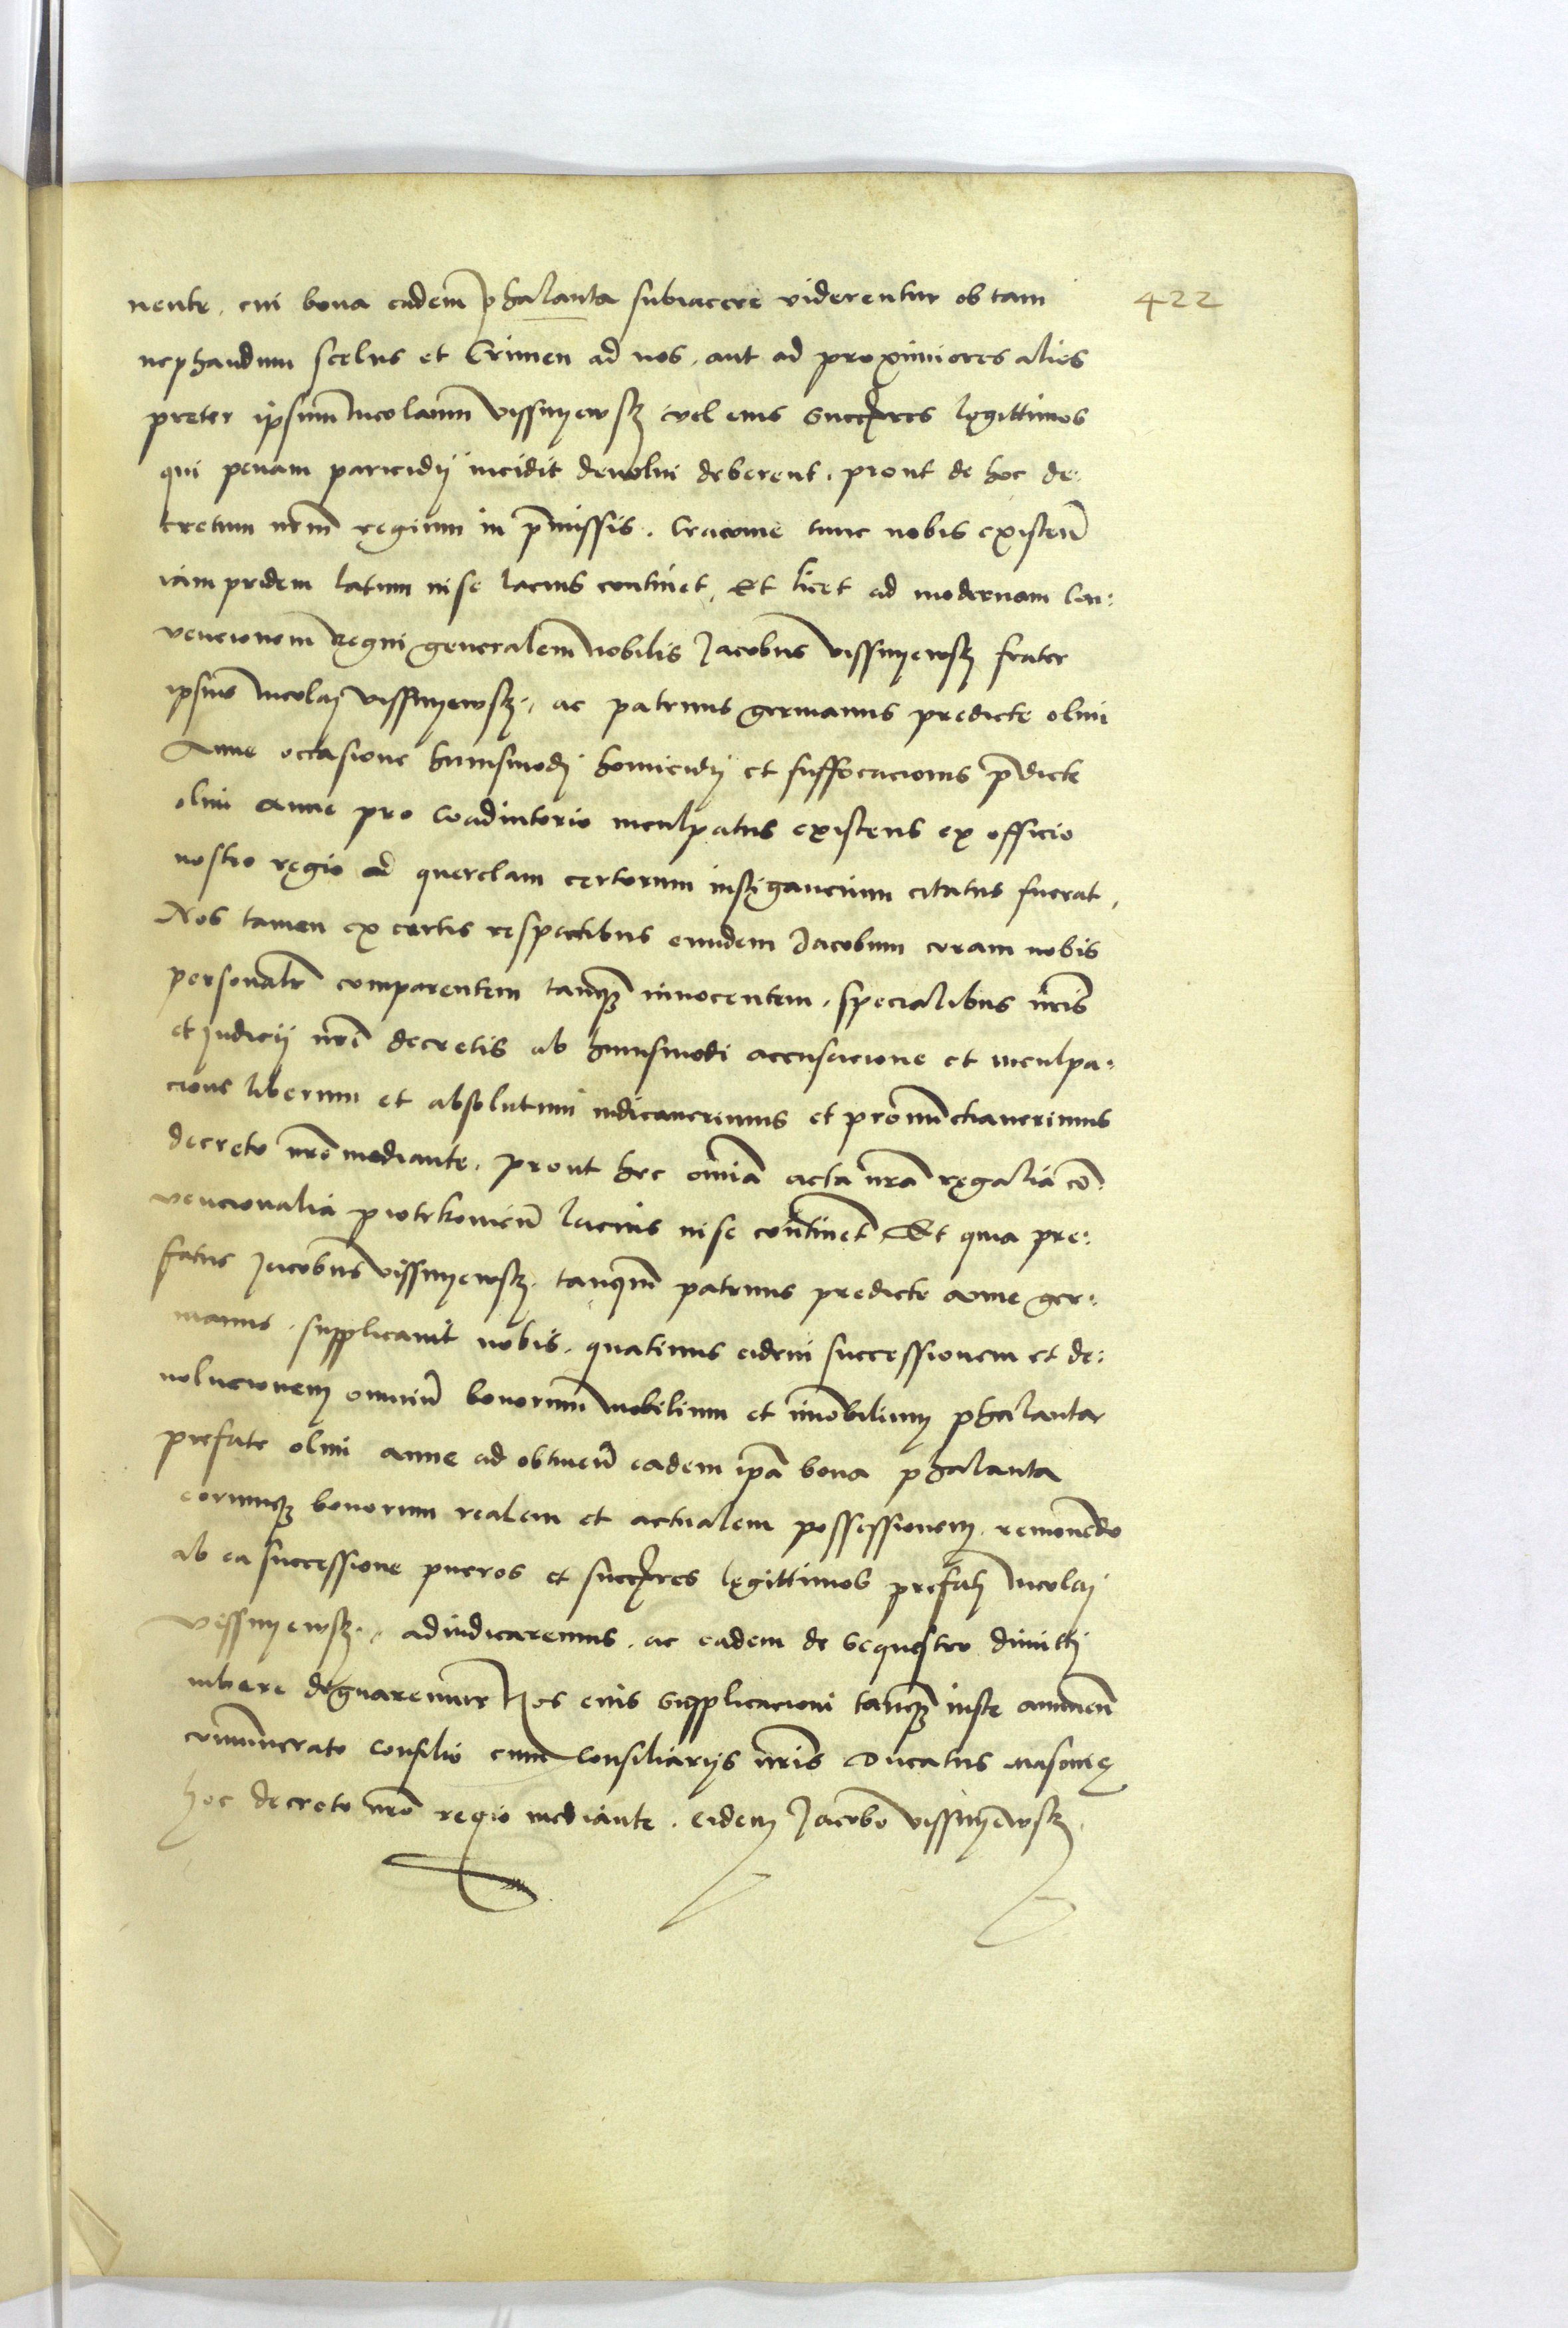 nente. cui bona eadem phalanta subiacere viderentur ob tam 422
nephandum scelus et Crimen ad nos. aut ad proximiores alios
preter ipsum Nicolaum Vissnyewsky vel eius succres legittimos
qui penam paricidy incidit devolui deberent. prout de hoc de:
cretum nrm regium in pmissis. Cracovie tunc nobis existen
iam pridem latum in se lacius continet. Et licet ad modernam Con:
vencionem Regni generalem nobilis Jacobus Vissnyewsky frater
ipsius Nicolai Vissnyewsky. ac patruus germanus predicte olim
Anne occasione huiusmodi homicidy et suffocacionis pdicte
olim Anne pro coadiutorio inculpatus existens ex officio
nostro regio ad querelam certorum instigancium citatus fuerat.
Nos tamen ex certis respectibus eundem Jacobum coram nobis
personalr comparentem tanq innocentem. specialibus nris
et Judicy nri decretis ab huiusmodi accusacione et inculpa:
cione liberum et absolutum iudicaverimus et pronunctiaverimus
decreto nro mediante. prout hec omia acta nra regalia co:
vencionalia piotrkovien lacius in se continet Et quia pre:
fatus Jacobus Vissnyewsky. tanqm patruus predicte Anne ger:
manus. supplicavit nobis. quatinus eidem successionem et de:
volucionem omniu bonorum mobilium et imobilium phalanta
prefate olim Anne ad obtinen eadem ipa bona phalanta
eorumq bonorum realem et actualem possessionem. removendo
ab ea successione pueros et succres legittimos prefati Nicolai
Vyssnyewsky. adiudicaremus. ac eadem de sequestro dimitti
iubere dignaremur Nos eius supplicacioni tanq iuste annuen
comunicato consilio cum Consiliarys nris Ducatus Masovie
hoc decreto nro regio mediante. eidem Jacobo Vissnyewsky.